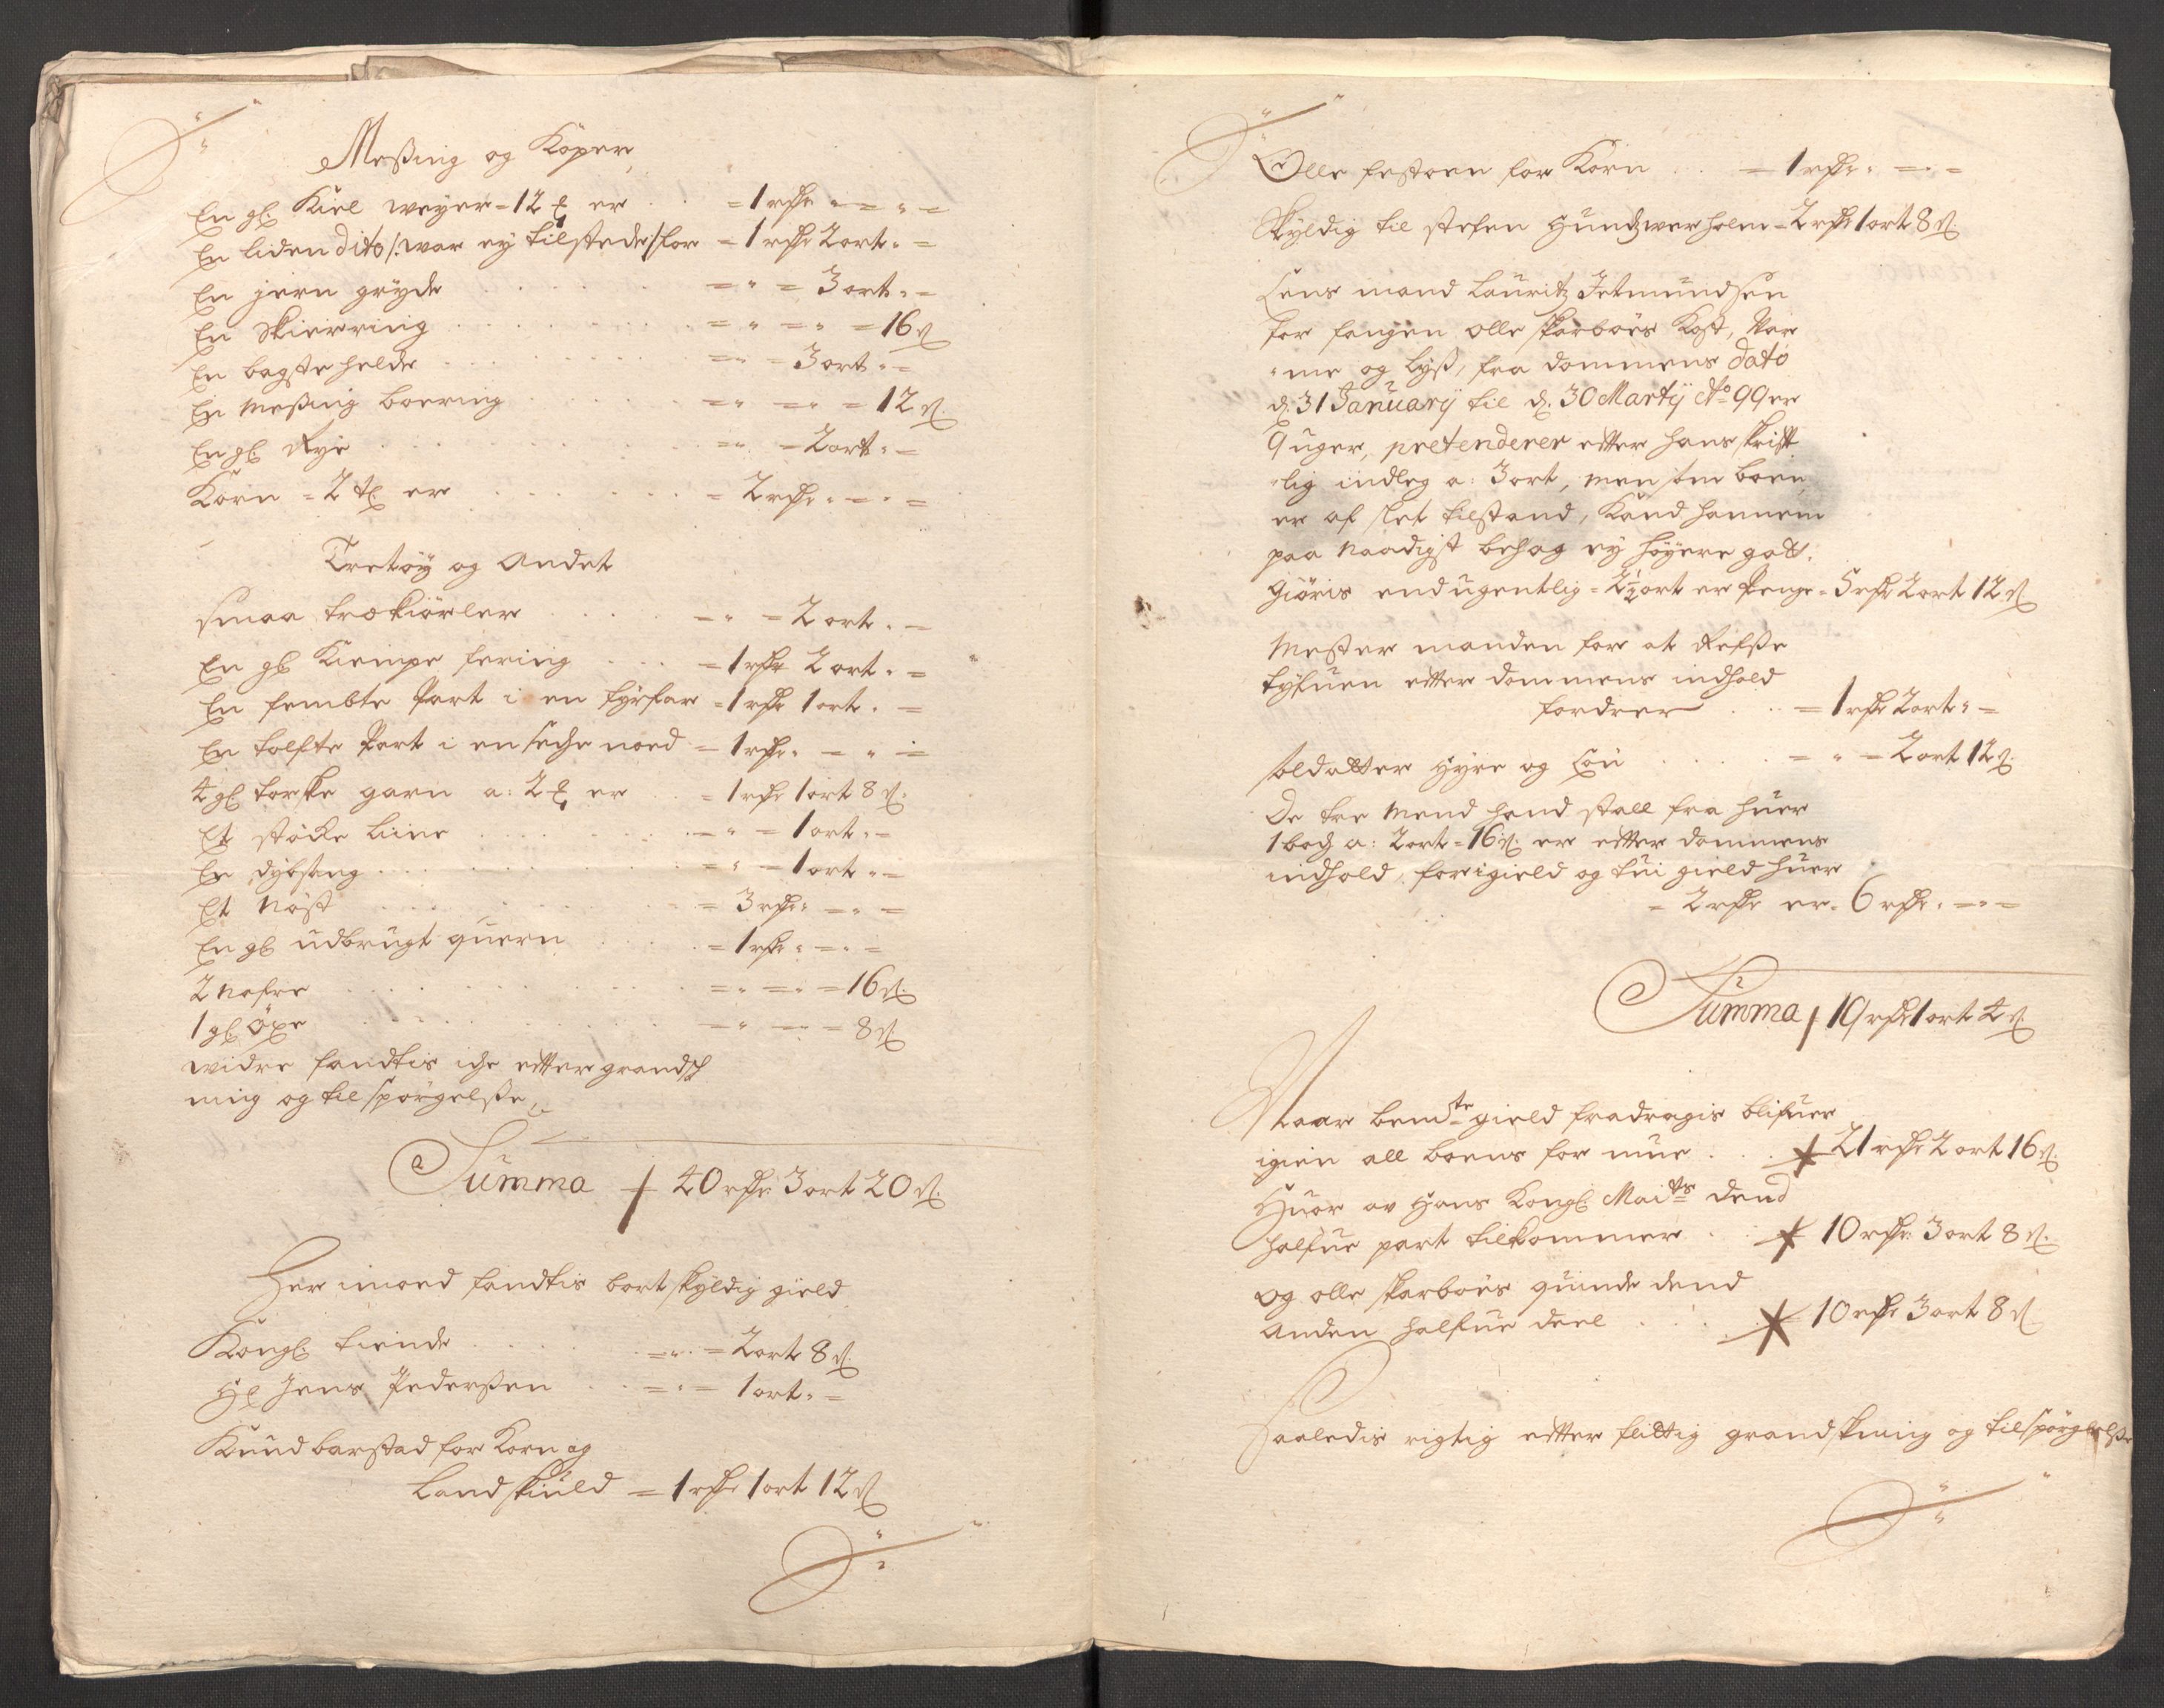 Messing og Kaaper
En gl. Kiel weyer = 12 ℔ er . . = 1 rdr = " =
En liden dito /: war ey tilstede :/ for = 1 rdr 2 ort " =
En jern gryde . . . = " = 3 ort " =
En Skierring . . . = " = " = 16 s.
En bagste helde . . . = " = 3 ort " =
En Messing boering . . . = " = " = 12 s.
En gl. Rye . . . = " = 2 ort " =
Korn = 2 td. er . . . = 2 rdr " = " =
Tretøy og Andet
Smaa trækiørler . . . = " = 2 ort " =
En gl. Kiempe fering . . . = 1 rdr 2 ort " =
En fembte Part i en fyrfar = 1 rdr 1 ort " =
En tolfte Part i en seche noed = 1 rdr " = " =
4 gl. torske garn a: 2 ℔ er . . = 1 rdr 1 ort 8 s.
Et støcke Line . . . = " = 1 ort " =
En dybsang . . . = " = 1 ort " =
Et Nøst . . . = 3 rdr " = " =
En gl. udbrugt quern . . . = 1 rdr " = " =
2 Nafre . . . = " = " = 16 s.
1 gl. Øxe . . . = " = " = 8 s.
widre fandtis iche efter grandsk
ning og tilspørgelsse,
Summa 40 rdr 3 ort 20 s.
Her imoed fandtis bortskyldig gield
Kongl. tiende . . . = " = 2 ort 8 s.
Hr. Jens Pederssen . . = " = 1 ort " =
Knud barstad for Korn og
Landskuld = 1 rdr 1 ort 12 s.
Olle festøen for Korn . . = 1 rdr " = " =
Skyldig til Steffen Hundzwerholm = 2 rdr 1 ort 8 s.
Lens mand Lauritz Jetmundsen
for fangen olle skarboes Kost, Var
"me og Lyss, fra dommens dato
d. 31 January til d. 30 Marty Ao 99 er
9 uger, pretenderer efter hans skrift
"lig indleg a: 3 ort, men som boen
er af slet tilstand, Kand hannem
paa Naadigst behag ey høyere gott
giøris end ugentlig = 2½ ort er Penge = 5 rdr 2 ort 12 s.
Mester manden for at Refsse
tyfuen efter dommens indhold
fordrer . . = 1 rdr 2 ort " =
soldatter Hyre og Løn . . . = " = 2 ort 12 s.
De tre Mend hand stall fra huer
1 boch a: 2 ort = 16 s. er efter dommens
indhold, for igield og tui gield huer
= 2 rdr er = 6 rdr " = " =
Summa 19 rdr 1 ort 4 s.
Naar bemte gield fradragis blifuer
igien all boens for mue . . . 21 rdr 2 ort 16 s.
Huor av Hans Kongl. Maits dend
halfue part tilkommer . . 10 rdr 3 ort 8 s.
og olle skarboes quinde dend
Anden halfue deel . . . 10 rdr 3 ort 8 s.
Saaledis rigtig efter flittig grandskning og tilspørgelsse